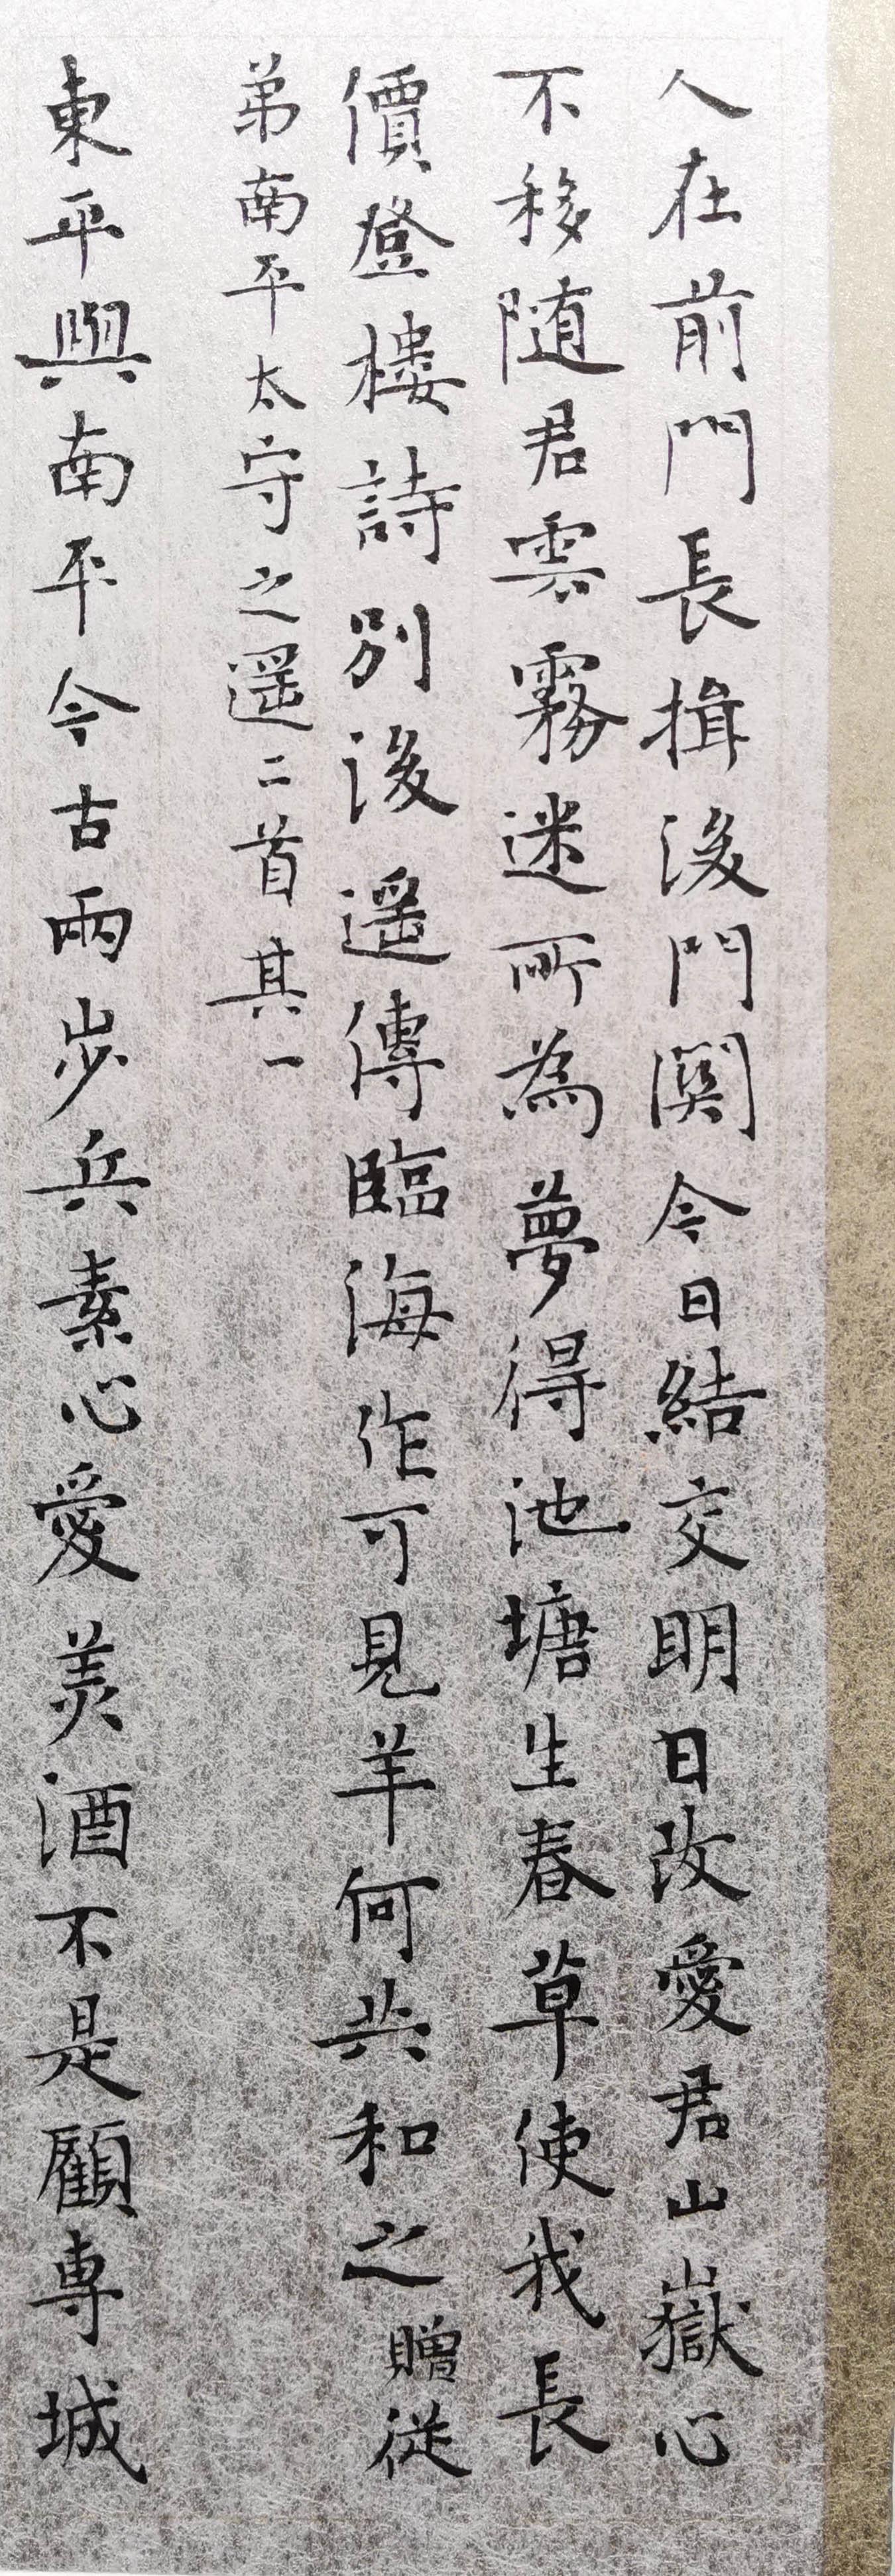 人在前門長揖後門關今日結交明日改愛君山嶽心
不移随君雲霧迷所為夢得池塘生春草使我長
價登樓詩別後遥傳臨海作可見羊何共和之贈從
弟南平太守之遥二首其一
東平與南平今古兩步兵素心愛美酒不是顧專城